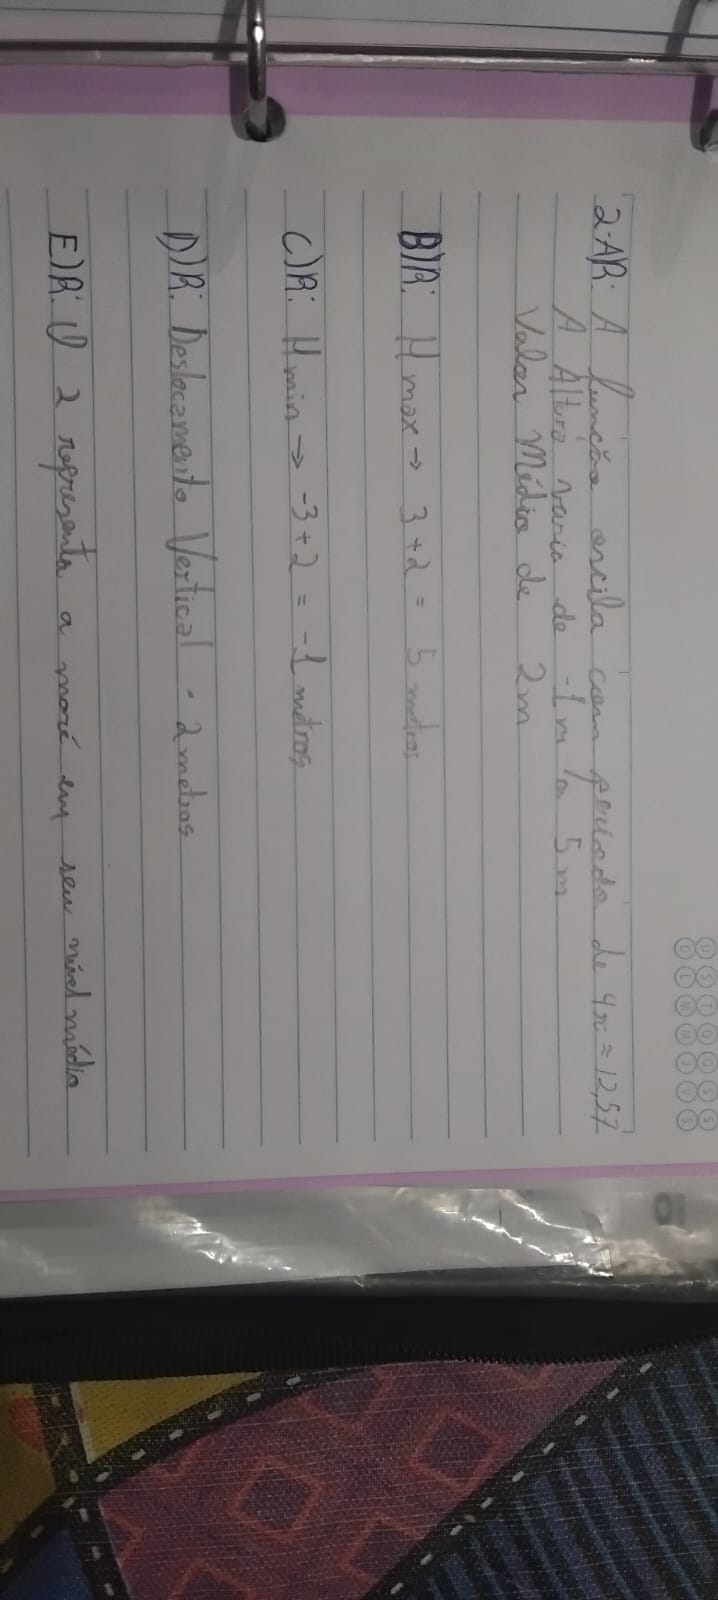 D S T Q Q S S
D L M M J V S
2-A)R: A função oscila com período de 4π ≈ 12,57
A Altura varia de -1m a 5m
Valor Médio de 2m
B)R: H max → 3 + 2 = 5 metros
C)R: H min → -3 + 2 = -1 metros
D)R: Deslocamento Vertical = 2 metros
E)R: O 2 representa a maré em seu nível médio